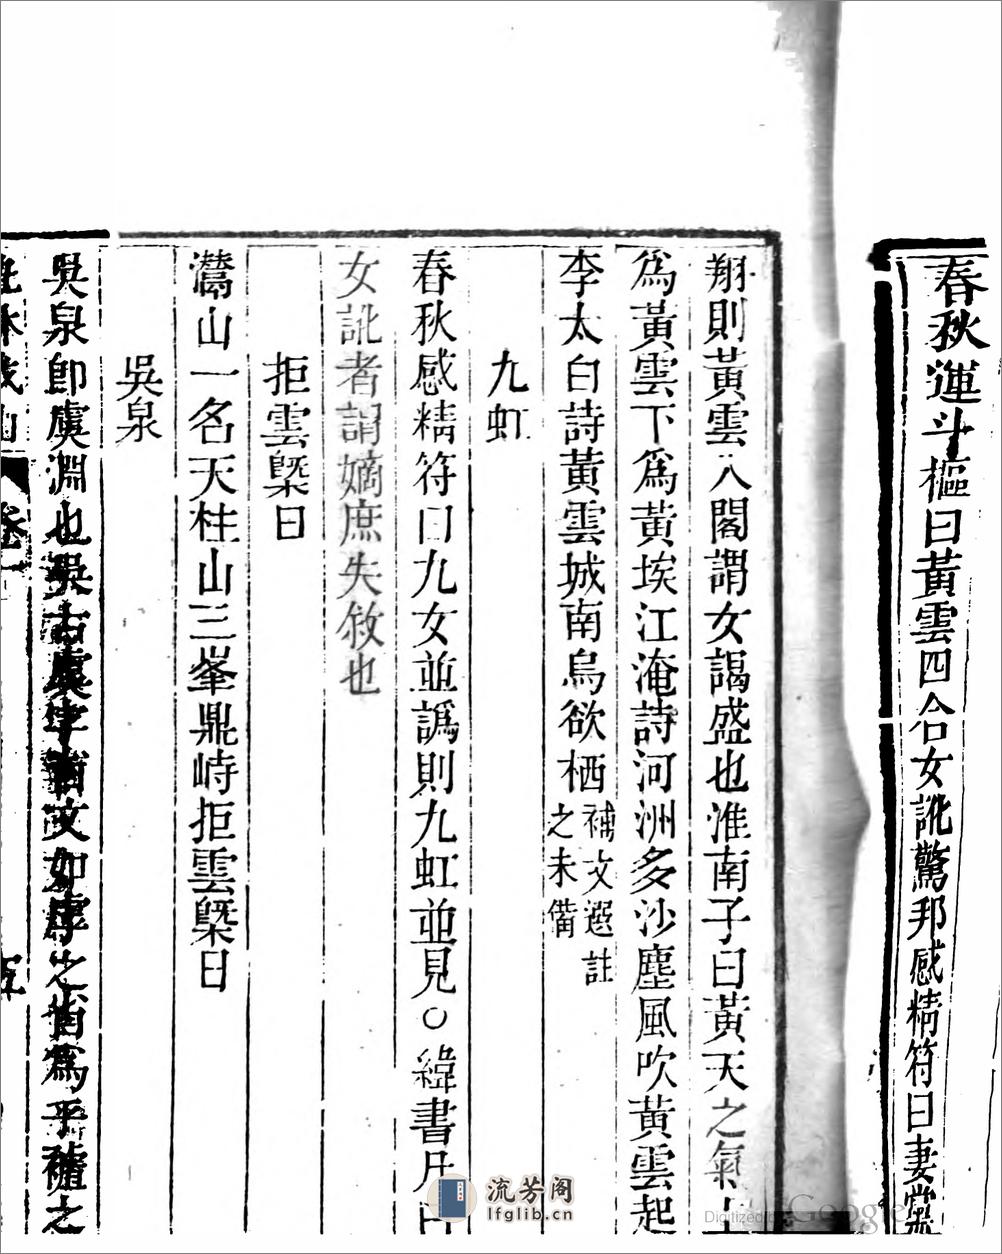 春秋運斗樞曰黃雲四合女訛驚邦感精符曰妻黨
翔則黃雲入閣謂女謁盛也淮南子曰黃天之氣上
為黃雲下為黃埃江淹詩河洲多沙塵風吹黃雲起
李太白詩黃雲城南烏欲栖補文選註
之未備
九虹
春秋感精符曰九女並譌則九虹並見○緯書凡曰
女訛者謂嫡庶失敘也
拒雲槩日
灊山一名天柱山三峯鼎峙拒雲槩日
吳泉
吳泉即虞淵也吳古虞字省文如虖之省為乎
流芳阁
lfglib.cn
Digitized by Google